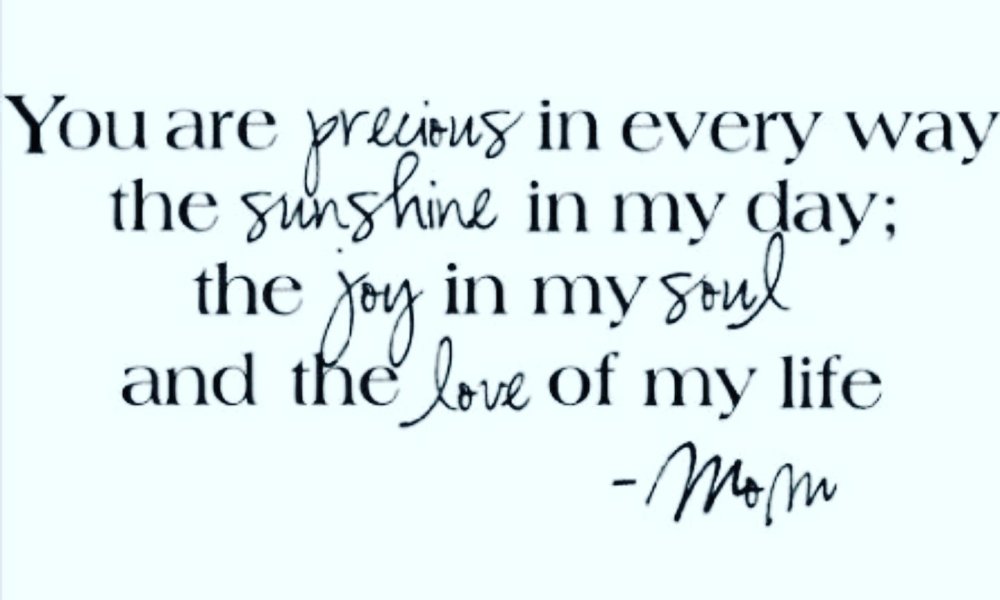 You are precious in every way
the sunshine in my day;
the joy in my soul
and the love of my life
-Mom